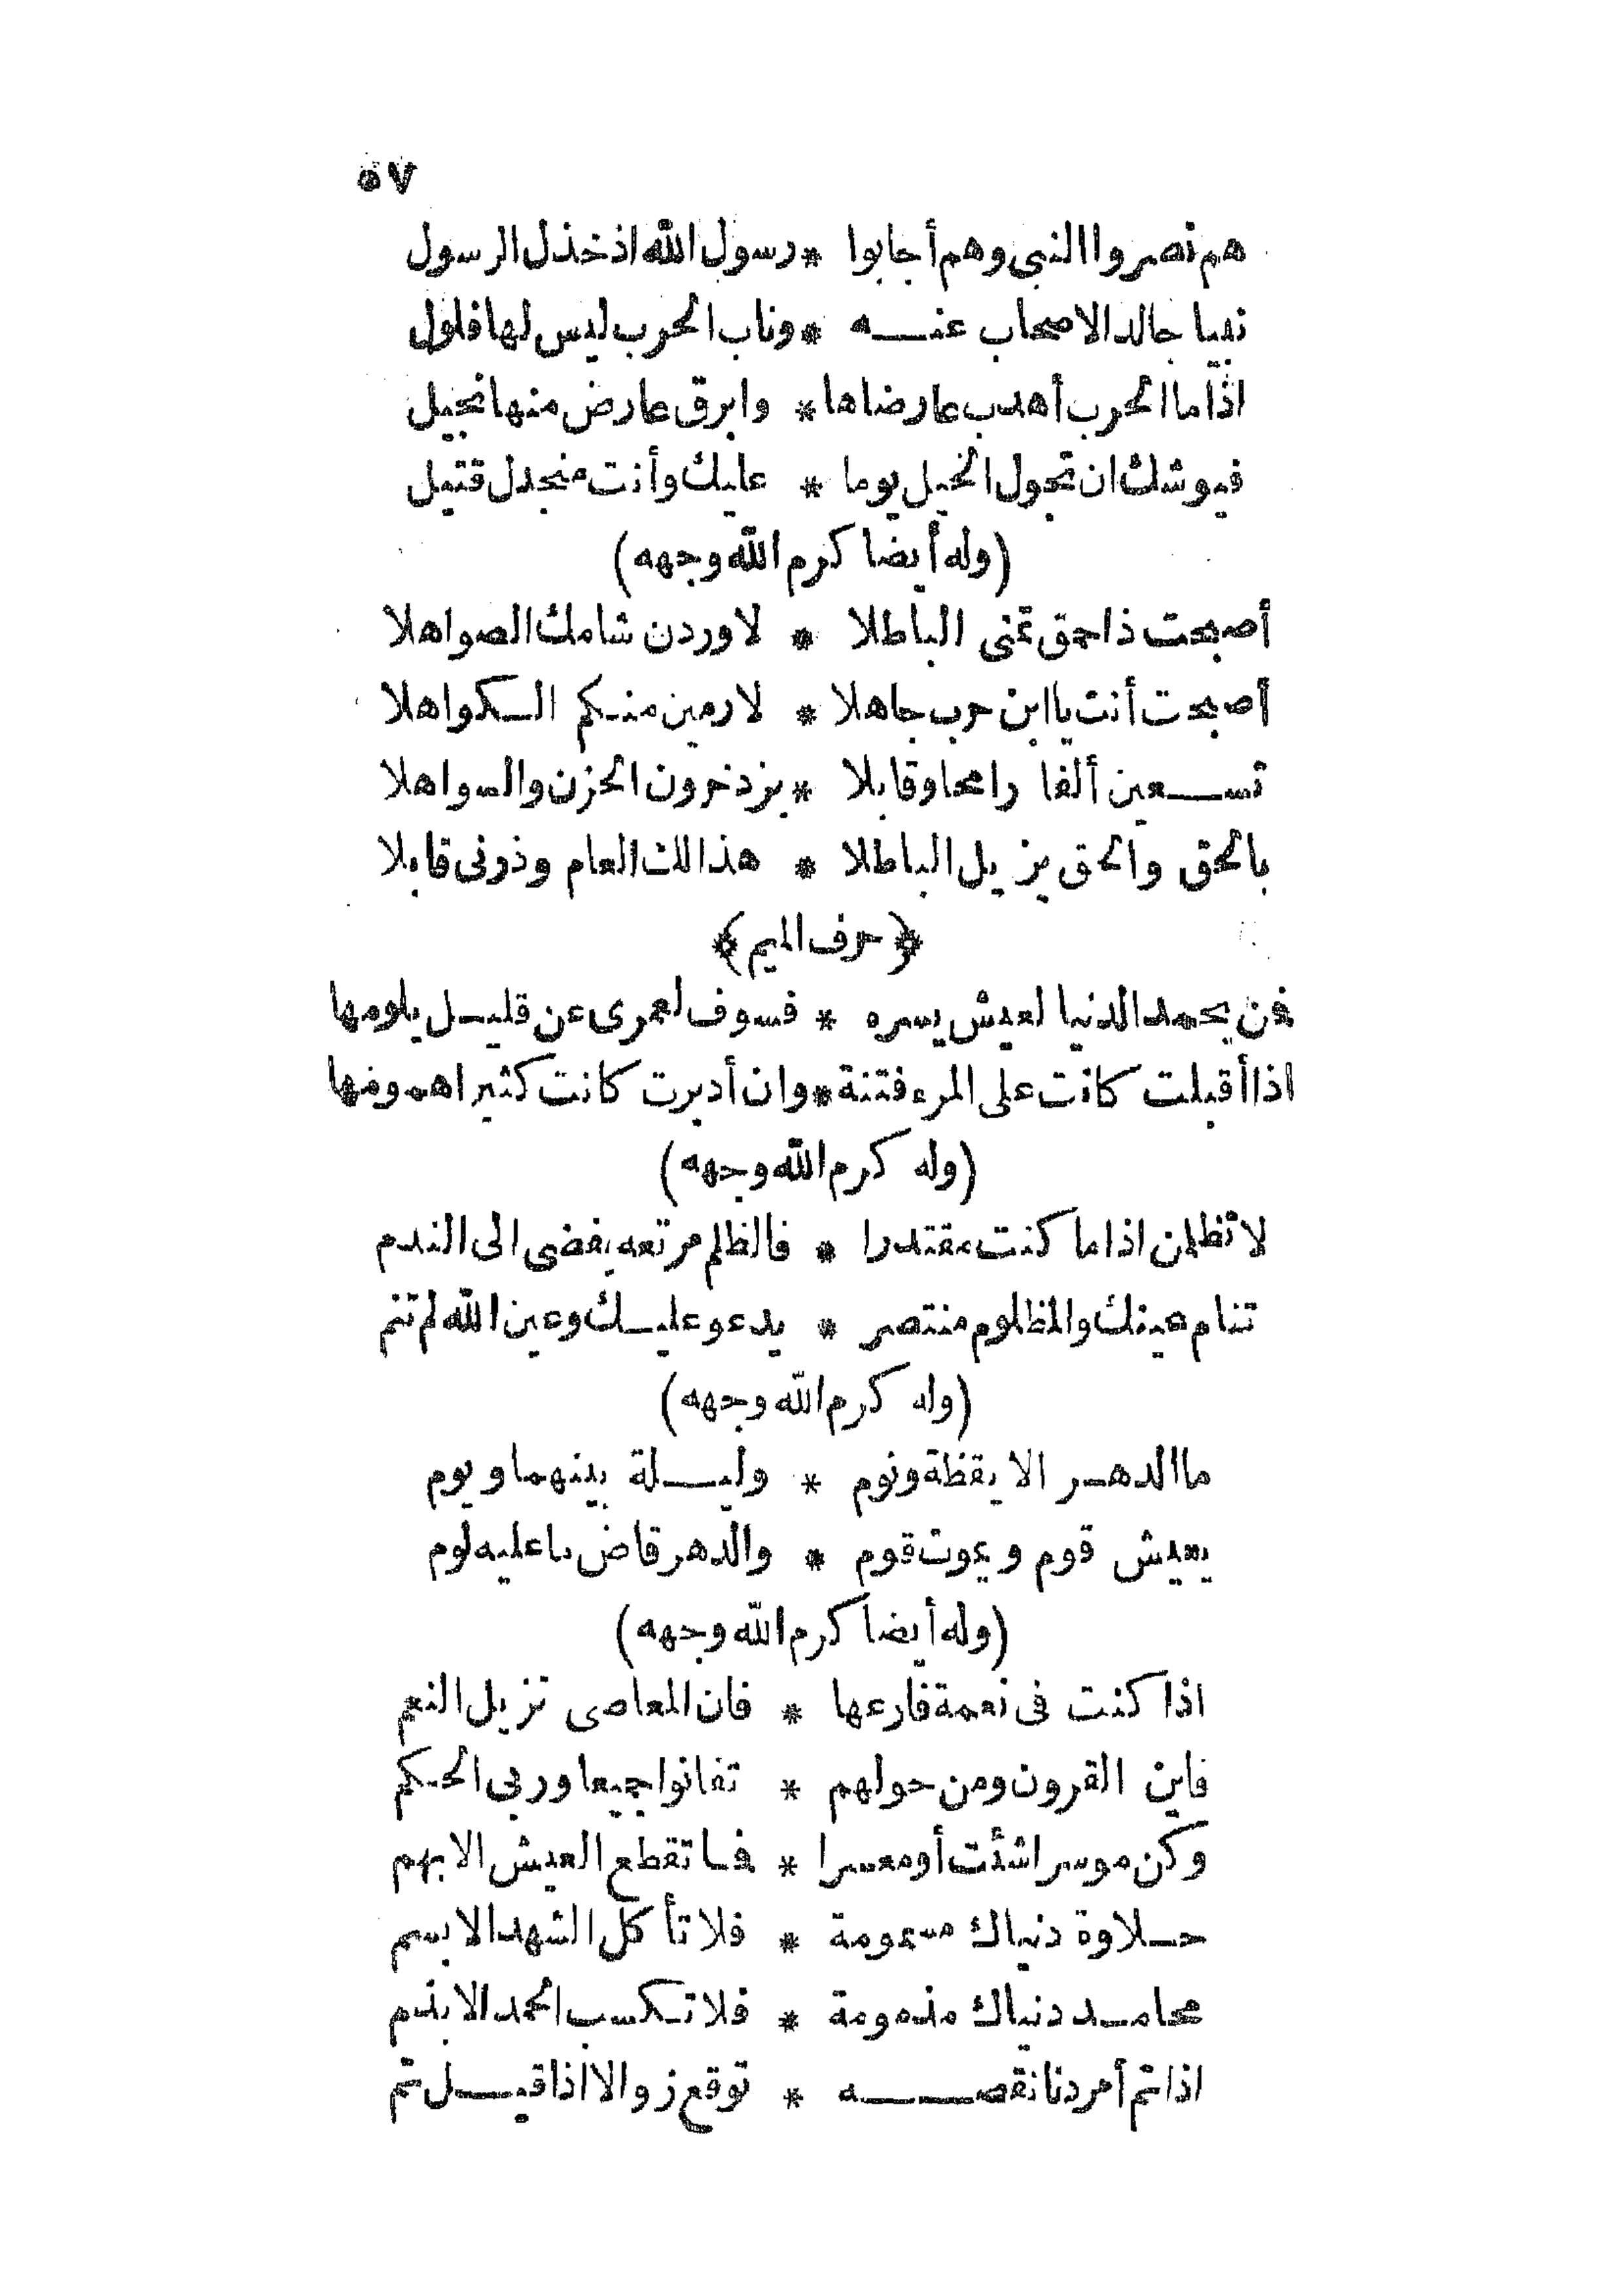 ٥٧
هم نصروا النبي وهم أجابوا * رسول الله اذ خذل الرسول
نبيا جالد الاصحاب عنه * وناب الحرب ليس لها فلول
اذا ما الحرب أهدب عارضاها * وابرق عارض منها نخيل
فيوشك ان تجول الخيل يوما * عليك وأنت منجدل قتيل
(وله أيضا كرم الله وجهه)
أصبحت ذا حمق تمنى الباطلا * لاوردن شامك الصواهلا
أصبحت أنت يا ابن حرب جاهلا * لارمين منكم الكواهلا
تسعين ألفا رامحا وقابلا * يزدخرون الحزن والسواهلا
بالحق والحق يزيل الباطلا * هذا لك العام وذرنى قابلا
﴿حرف الميم﴾
فمن يحمد الدنيا لعيش يسره * فسوف لعمرى عن قليل يلومها
اذا أقبلت كانت على المرء فتنة * وان أدبرت كانت كثيرا همومها
(وله كرم الله وجهه)
لا تظلمن اذا ما كنت مقتدرا * فالظلم مرتعه يفضى الى الندم
تنام عينك والمظلوم منتصر * يدعو عليك وعين الله لم تنم
(وله كرم الله وجهه)
ما الدهر الا يقظة ونوم * وليلة بينهما ويوم
يعيش قوم ويموت قوم * والدهر قاض ما عليه لوم
(وله أيضا كرم الله وجهه)
اذا كنت فى نعمة فارعها * فان المعاصى تزيل النعم
فاين القرون ومن حولهم * تفانوا جميعا وربى الحكم
وكن موسرا شئت أو معسرا * فما تقطع العيش الا بهم
حلاوة دنياك مسمومة * فلا تأكل الشهد الا بسم
محامد دنياك مذمومة * فلا تكسب الحمد الا بذم
اذا تم أمر دنا نقصه * توقع زوالا اذا قيل تم